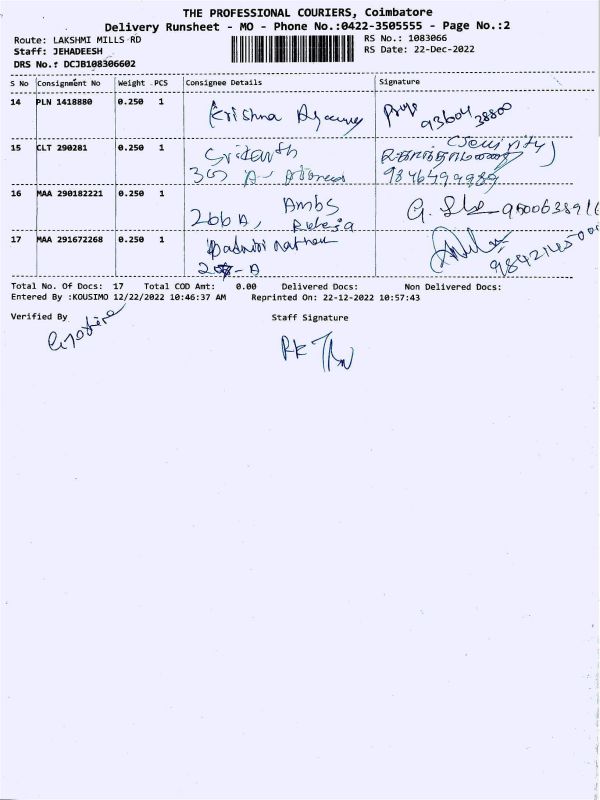 THE PROFESSIONAL COURIERS, Coimbatore
Delivery Runsheet - MO - Phone No.:0422-3505555 - Page No.:2
Route: LAKSHMI MILLS RD
RS No.: 1083066
Staff: JEHADEESH
RS Date: 22-Dec-2022
DRS No.: DCJB108306602
S No Consignment No Weight PCS Consignee Details Signature
14 PLN 1418880 0.250 1 Krishna 93604 38800
15 CLT 290281 0.250 1
9846499989
16 MAA 290182221 0.250 1 Ambs
266A,
17 MAA 291672268 0.250 1
Total No. Of Docs: 17 Total COD Amt: 0.00 Delivered Docs: Non Delivered Docs:
Entered By :KOUSIMO 12/22/2022 10:46:37 AM Reprinted On: 22-12-2022 10:57:43
Verified By
Staff Signature